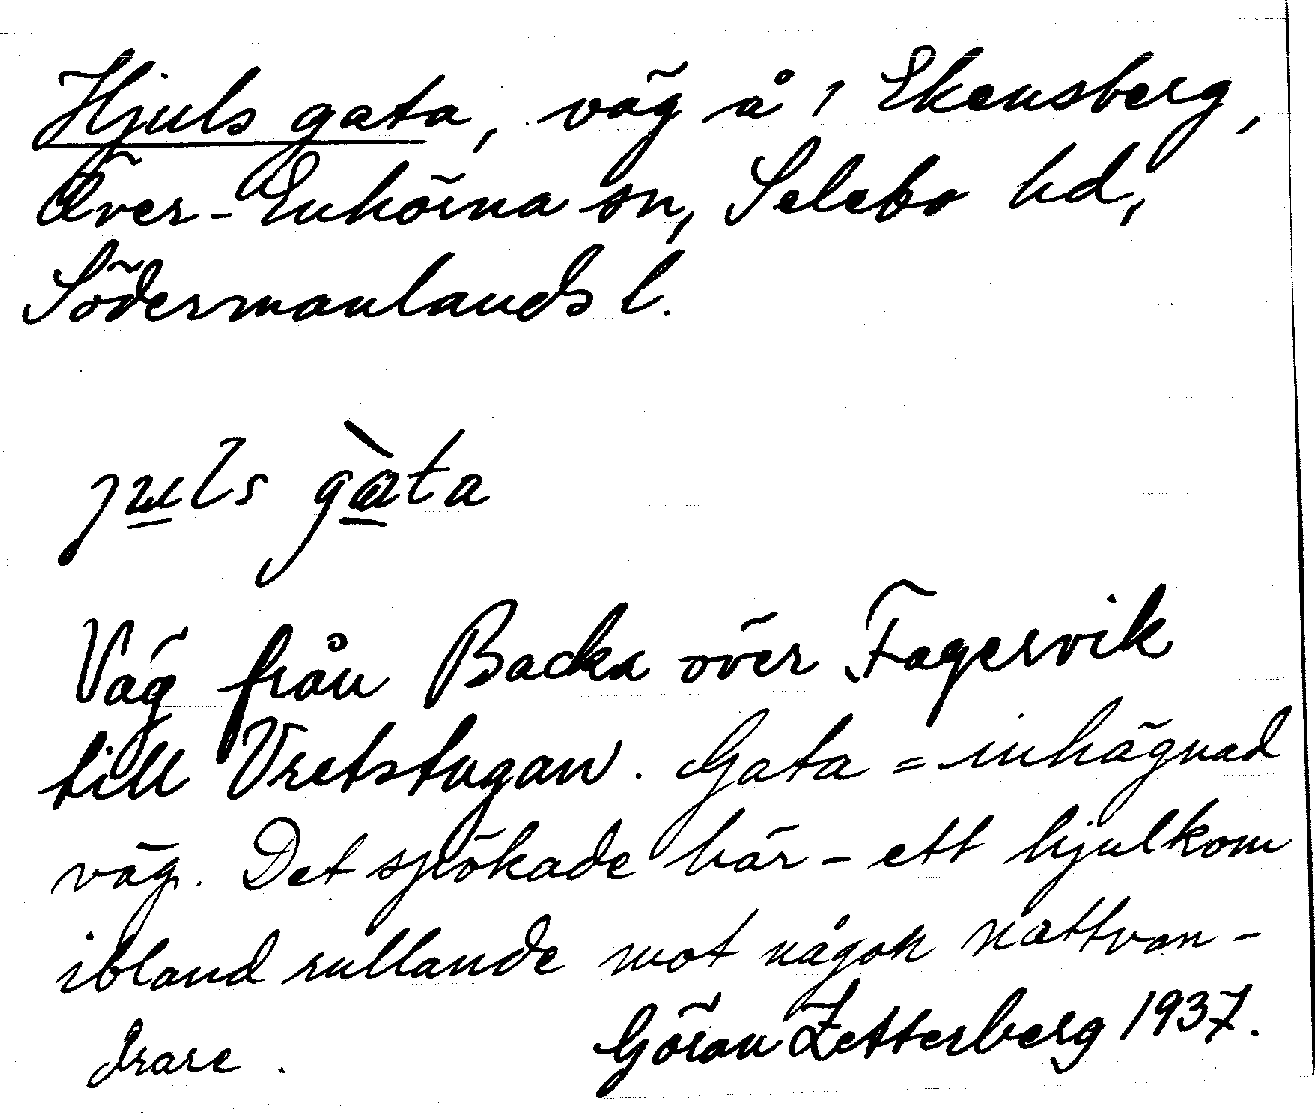 Hjuls gata, väg å 1 Ekensberg,
Över-Enhörna sn, Selebo hd,
Södermanlands l.
juls gàta
Väg från Backa över Fagervik
till Vretstugan. Gata = inhägnad
väg. Det spökade här – ett hjul kom
ibland rullande mot någon nattvan-
drare.
Göran Zetterberg 1937.